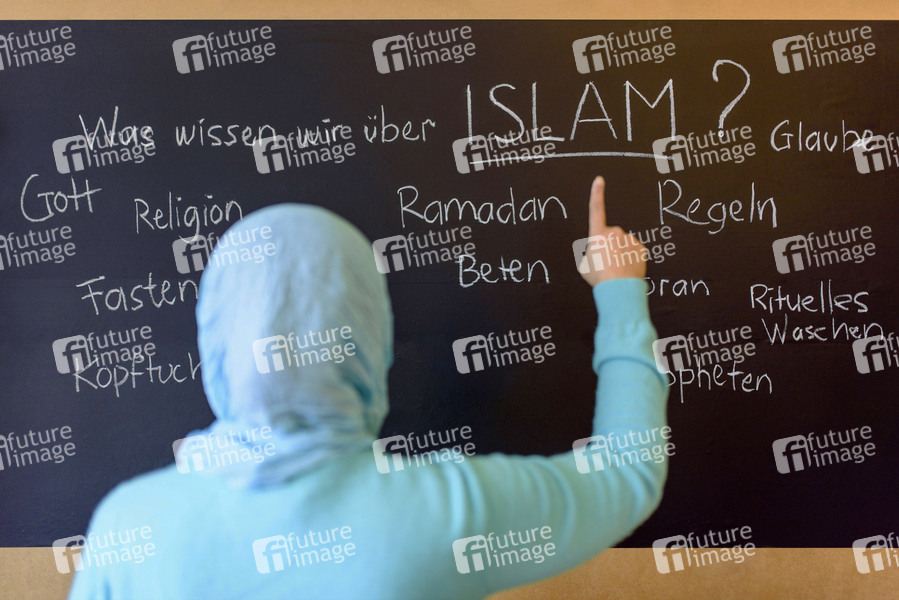 Was wissen wir über ISLAM?
Glaube
Gott
Religion
Ramadan
Regeln
Beten
Fasten
oran
Rituelles
Waschen
Kopftuch
opheten
future image